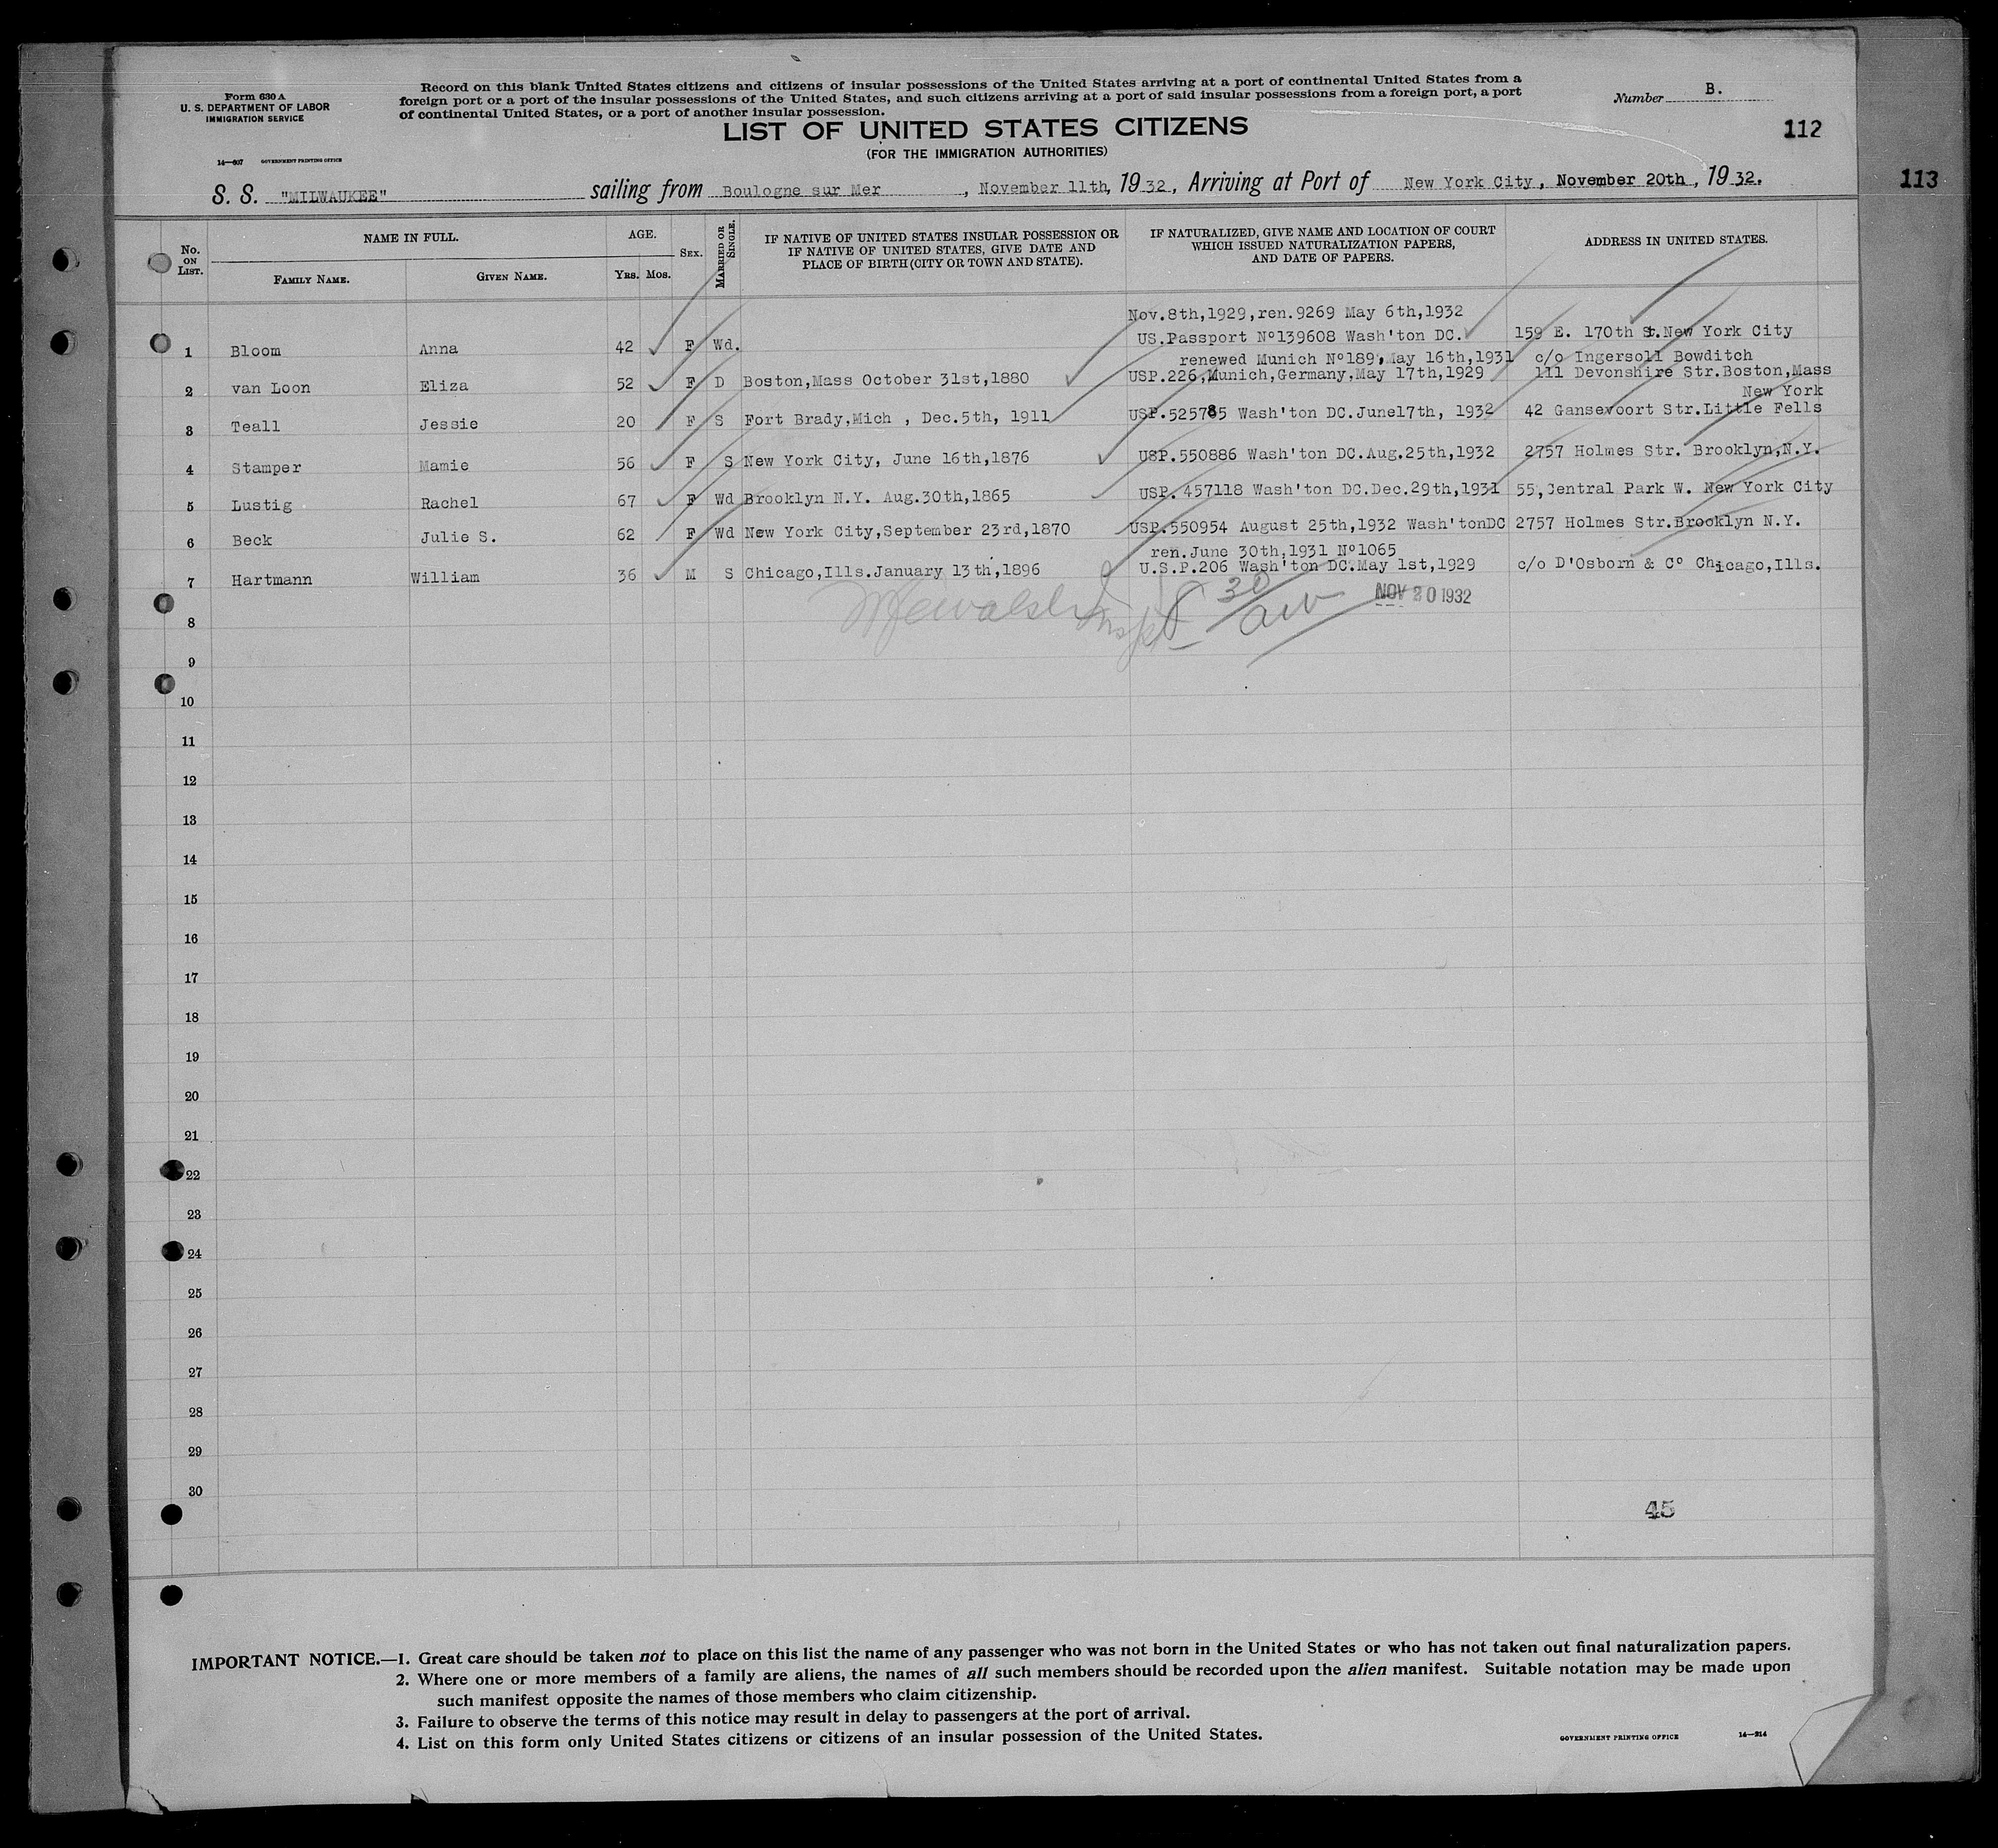 Form 630 A
U. S. DEPARTMENT OF LABOR
IMMIGRATION SERVICE
14—607 GOVERNMENT PRINTING OFFICE
Record on this blank United States citizens and citizens of insular possessions of the United States arriving at a port of continental United States from a
foreign port or a port of the insular possessions of the United States, and such citizens arriving at a port of said insular possessions from a foreign port, a port
of continental United States, or a port of another insular possession.
Number B.
112
113
LIST OF UNITED STATES CITIZENS
(FOR THE IMMIGRATION AUTHORITIES)
S. S. "MILWAUKEE" sailing from Boulogne sur Mer, November 11th, 1932, Arriving at Port of New York City, November 20th, 1932.
No. ON LIST.
NAME IN FULL.
FAMILY NAME. GIVEN NAME.
AGE.
YRS. MOS.
SEX.
MARRIED OR SINGLE.
IF NATIVE OF UNITED STATES INSULAR POSSESSION OR
IF NATIVE OF UNITED STATES, GIVE DATE AND
PLACE OF BIRTH (CITY OR TOWN AND STATE).
IF NATURALIZED, GIVE NAME AND LOCATION OF COURT
WHICH ISSUED NATURALIZATION PAPERS,
AND DATE OF PAPERS.
ADDRESS IN UNITED STATES.
Nov.8th,1929,ren.9269 May 6th,1932
1 Bloom Anna 42 F Wd. US.Passport Nº139608 Wash'ton DC. 159 E. 170th St.New York City
renewed Munich Nº189,May 16th,1931 c/o Ingersoll Bowditch
2 van Loon Eliza 52 F D Boston,Mass October 31st,1880 USP.226,Munich,Germany,May 17th,1929 111 Devonshire Str.Boston,Mass
New York
3 Teall Jessie 20 F S Fort Brady,Mich , Dec.5th, 1911 USP.525785 Wash'ton DC.June17th, 1932 42 Gansevoort Str.Little Fells
4 Stamper Mamie 56 F S New York City, June 16th,1876 USP.550886 Wash'ton DC.Aug.25th,1932 2757 Holmes Str. Brooklyn,N.Y.
5 Lustig Rachel 67 F Wd Brooklyn N.Y. Aug.30th,1865 USP.457118 Wash'ton DC.Dec.29th,1931 55,Central Park W. New York City
6 Beck Julie S. 62 F Wd New York City,September 23rd,1870 USP.550954 August 25th,1932 Wash'tonDC 2757 Holmes Str.Brooklyn N.Y.
ren.June 30th,1931 Nº1065
7 Hartmann William 36 M S Chicago,Ills.January 13th,1896 U.S.P.206 Wash'ton DC.May 1st,1929 c/o D'Osborn & Cº Chicago,Ills.
8 30 NOV 20 1932
8
9
10
11
12
13
14
15
16
17
18
19
20
21
22
23
24
25
26
27
28
29
30
45
IMPORTANT NOTICE.—1. Great care should be taken not to place on this list the name of any passenger who was not born in the United States or who has not taken out final naturalization papers.
2. Where one or more members of a family are aliens, the names of all such members should be recorded upon the alien manifest. Suitable notation may be made upon
such manifest opposite the names of those members who claim citizenship.
3. Failure to observe the terms of this notice may result in delay to passengers at the port of arrival.
4. List on this form only United States citizens or citizens of an insular possession of the United States.
GOVERNMENT PRINTING OFFICE 14—214